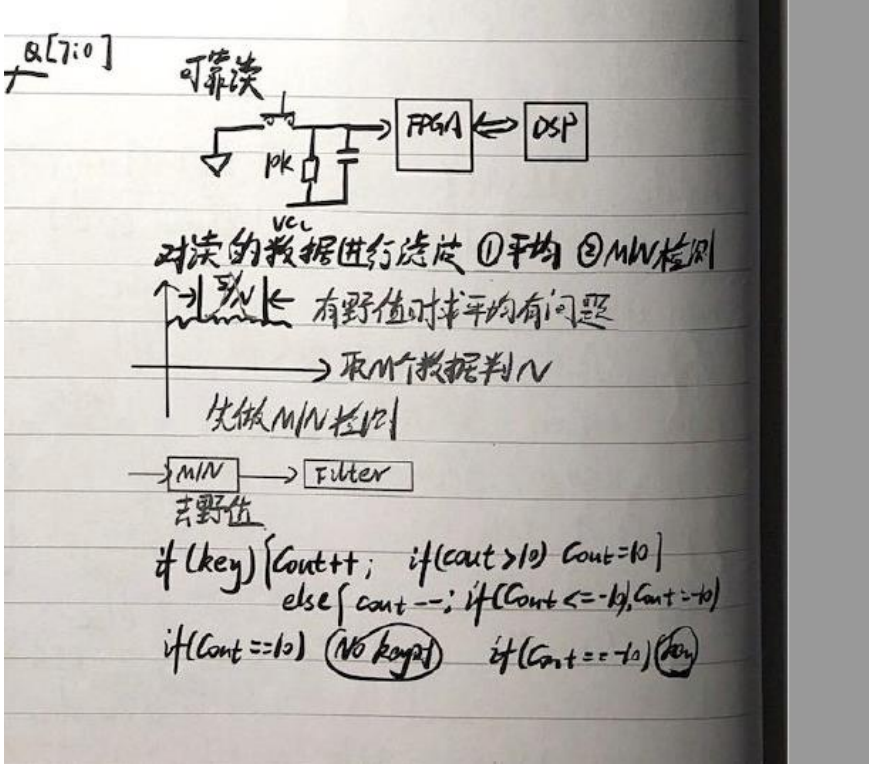 Q[7:0]
可靠读
FPGA DSP
10k
VCC
对读的数据进行滤波 ①平均 ②M/N检测
M/N 有野值时求平均有问题
取M个数据判N
先做M/N检测
M/N Filter
去野值
if(key){Cout++; if(cout>10) Cout=10}
else{cout--; if(Cout<=-10),Cout=-10}
if(Cout==10) No keyed if(Cout==-10) key